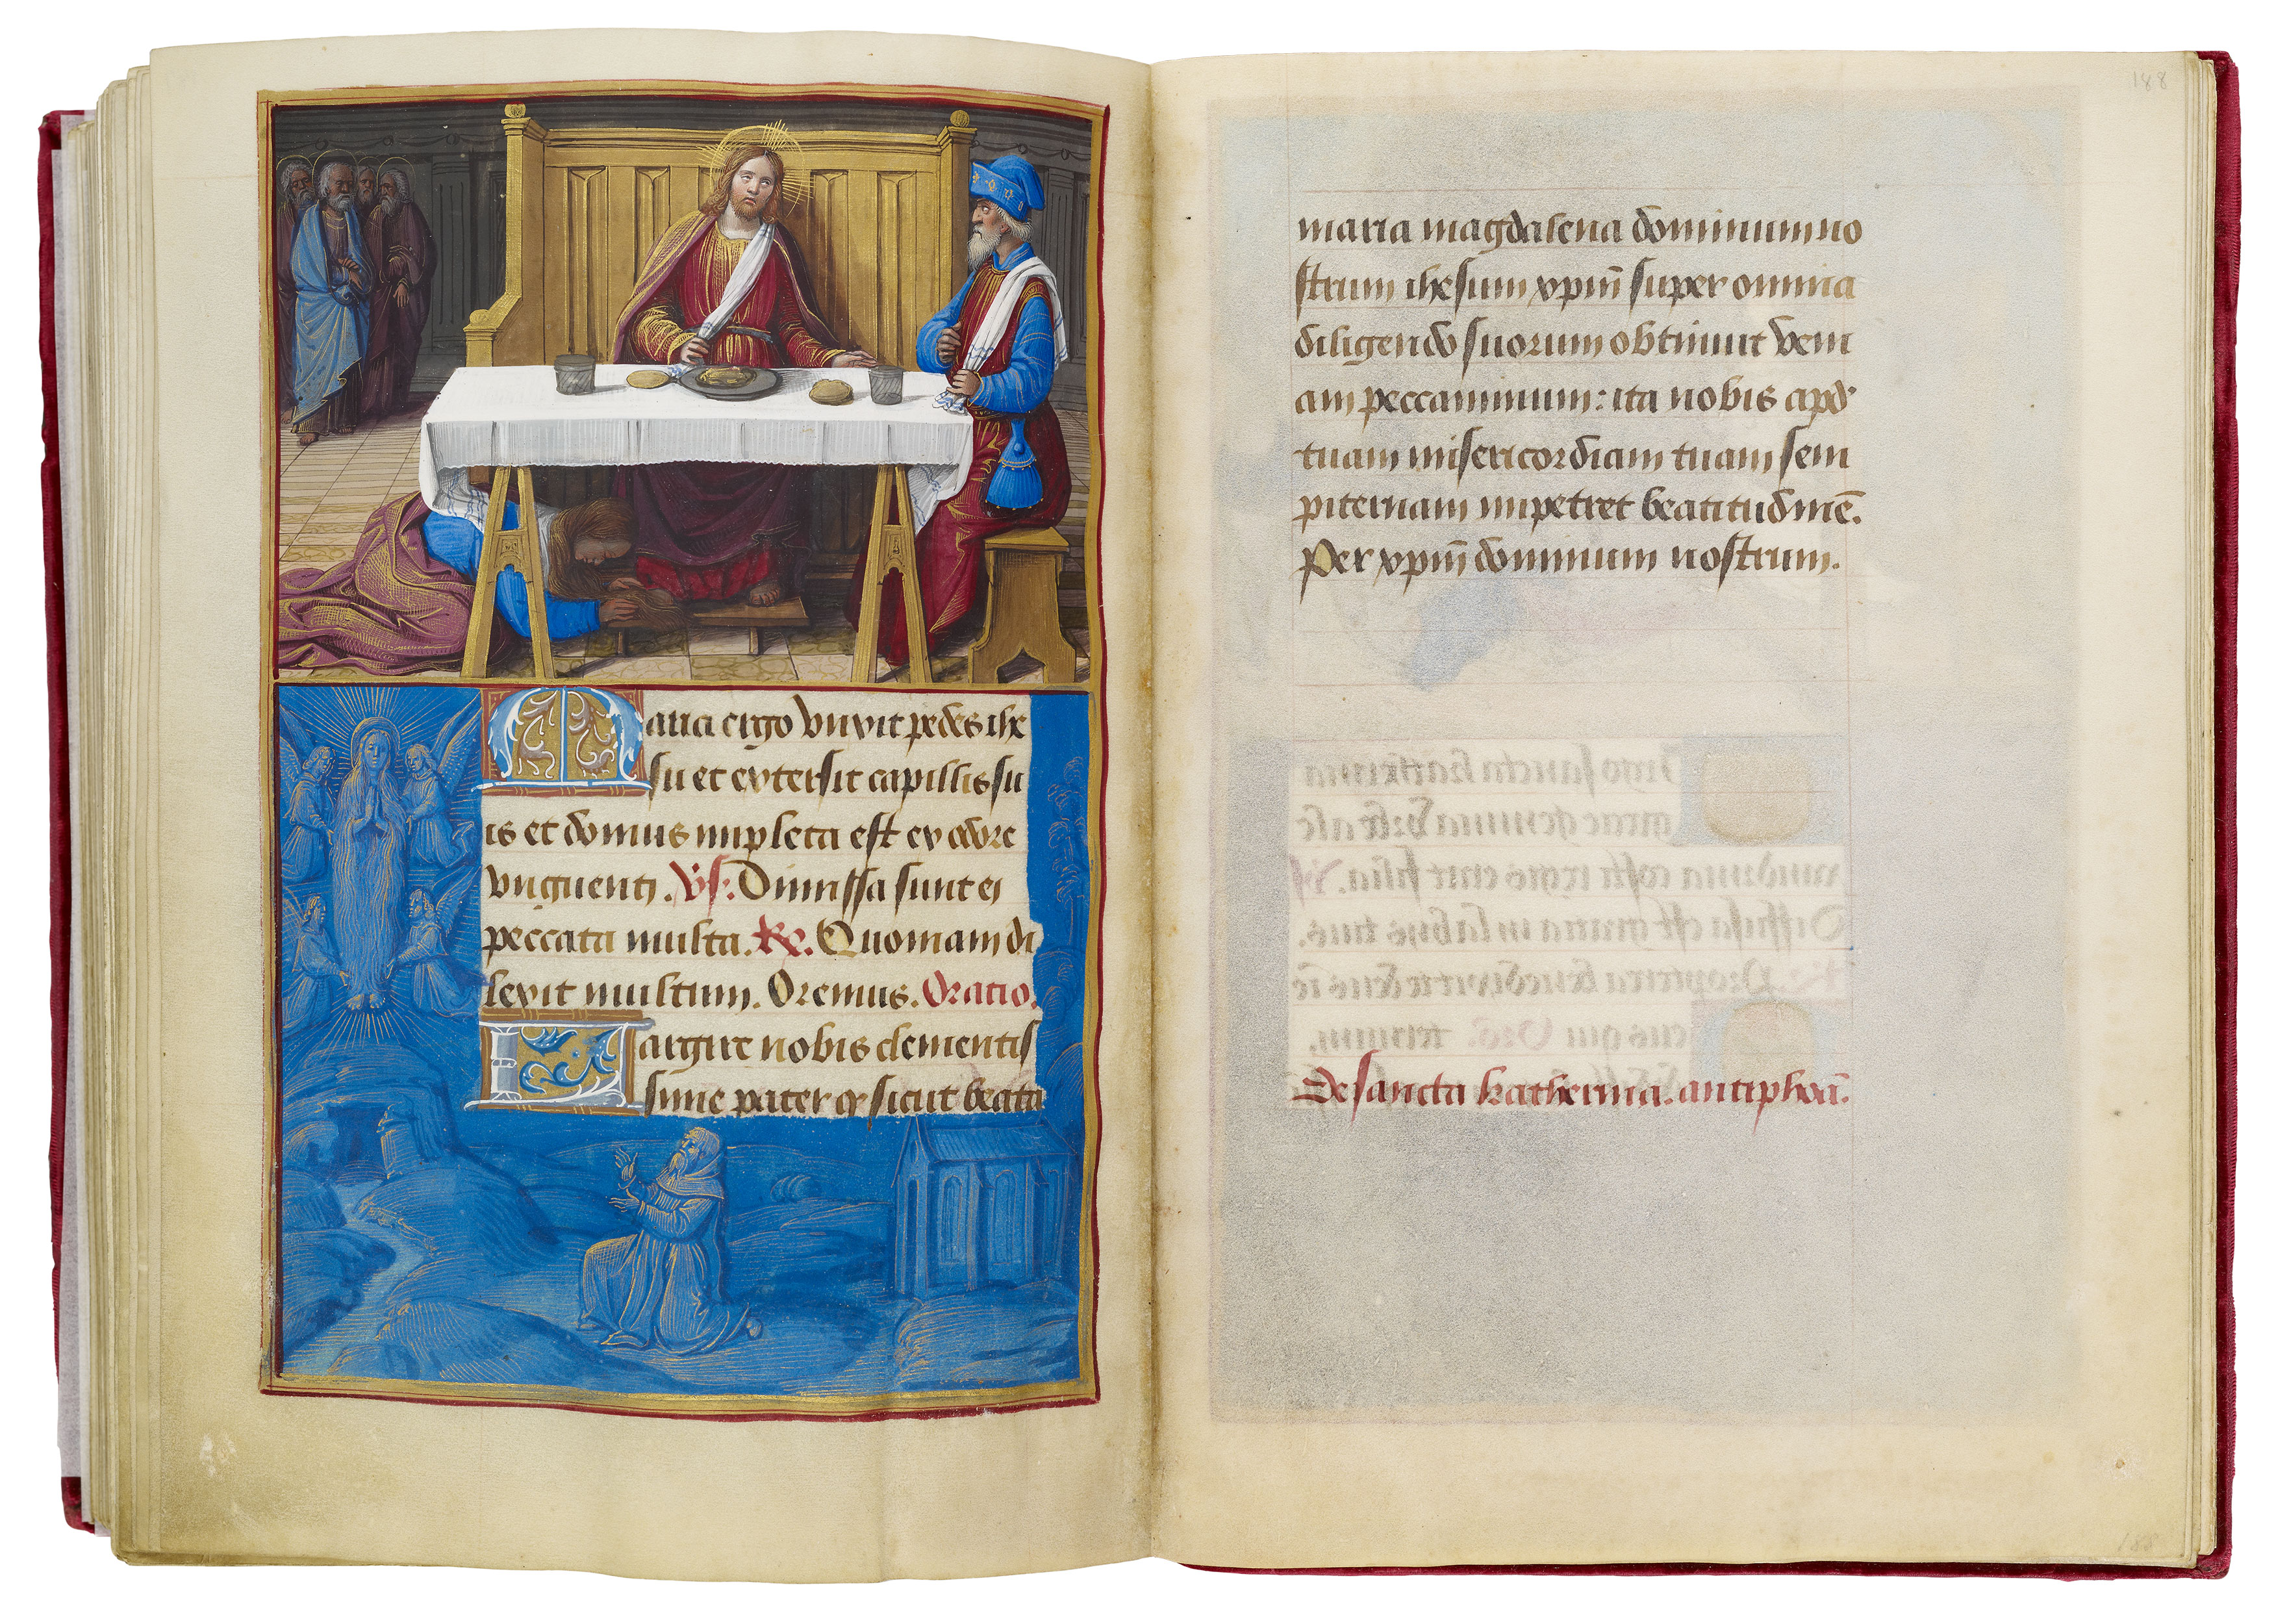 Maria ergo vnxit pedes ihe
su et extersit capillis su
is et domus impleta est ex odore
vnguenti. Vs. Dimissa sunt ei
peccata multa. R. Quoniam di
lexit multum. Oremus. Oratio.
Largire nobis clementis
sime pater qr sicut beata
188
maria magdalena dominum no
strum ihesum xpm̄ super omnia
diligendo suorum obtinuit veni
am peccaminum: ita nobis apd'
tuam misericordiam tuam sem
piternam impetret beatitudinē.
Per xpm̄ dominum nostrum.
De sancta katherina. antiphoā.
188